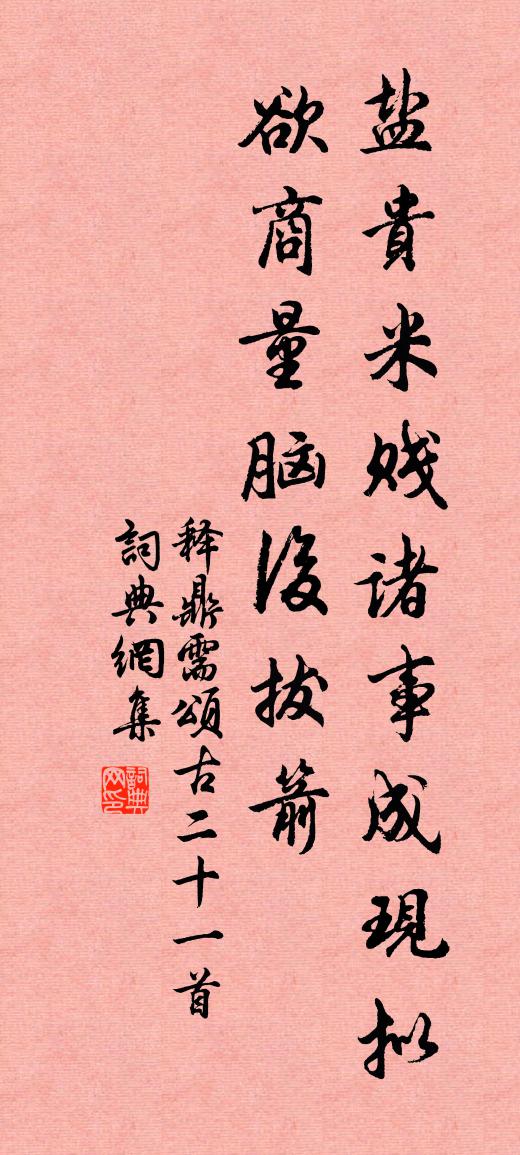 盐貴米贱诸事成現拟
欲商量脑後拔箭
释鼎需頌古二十一首
詞典網集
詞典网印